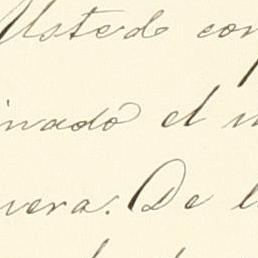 Usted con
inado el
vera. De l